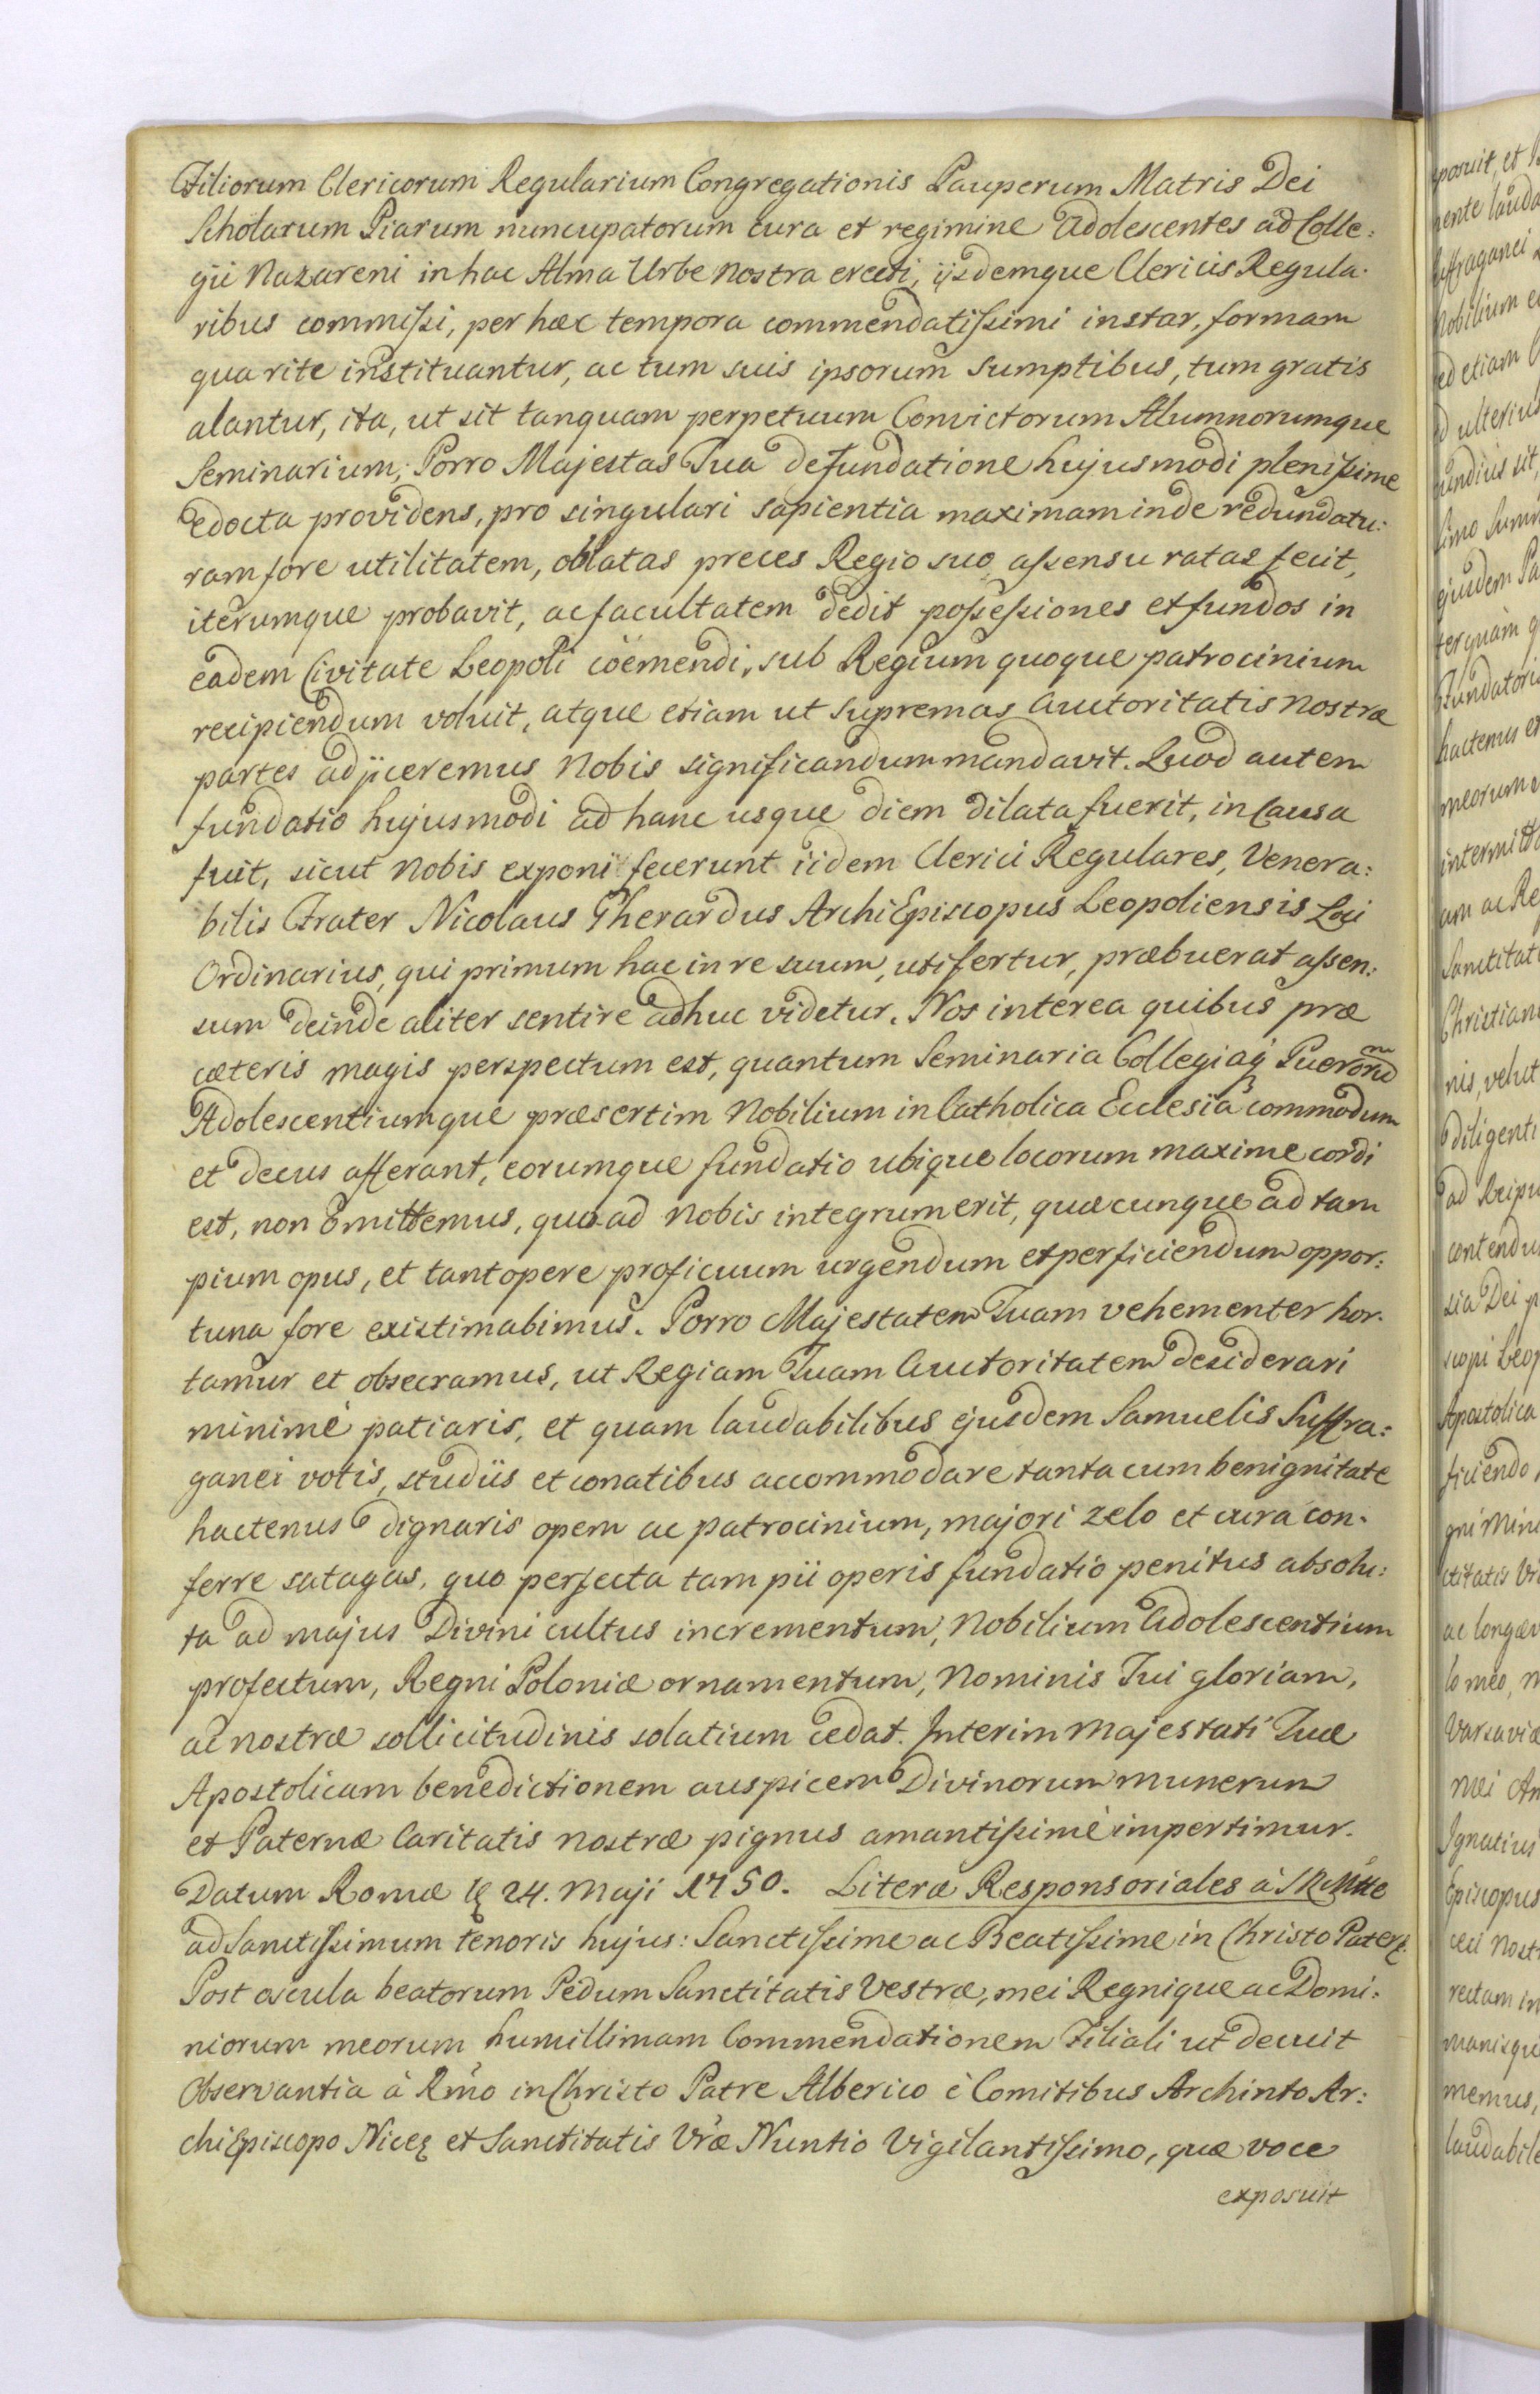 Filiorum Clericorum Regularium Congregationis Pauperum Matris Dei
Scholarum Piarum nuncupatorum cura et regimine Adolescentes ad Colle:
gii Nazareni in hac Alma Urbe nostra erecti, ijsdemque Clericis Regula.
ribus commissi, per hæc tempora commendatissimi instar, formam
qua rite instituantur, ac tum suis ipsorum sumptibus, tum gratis
alantur, ita, ut sit tanquam perpetuum Convictorum Alumnorumque
Seminarium; Porro Majestas Tua de fundatione hujusmodi plenissime
edocta providens, pro singulari sapientia maximam inde redundatu:
ram fore utilitatem, oblatas preces Regio suo assensu ratas fecit,
iterumque probavit, ac facultatem dedit possessiones et fundos in
eadem Civitate Leopoli coëmendi, sub Regium quoque patrocinium
recipiendum voluit, atque etiam ut supremas Auctoritatis nostræ
partes adjiceremus nobis significandum mandavit. Quod autem
fundatio hujusmodi ad hanc usque diem dilata fuerit, in Causa
fuit, sicut nobis exponi fecerunt iidem Clerici Regulares, Venera:
bilis Frater Nicolaus Gherardus ArchiEpiscopus Leopoliensis Loci
Ordinarius, qui primum hac in re suum, uti fertur, præbuerat assen:
sum deinde aliter sentire adhuc videtur. Nos interea quibus præ
cæteris magis perspectum est, quantum Seminaria Collegiaq Puerorum
Adolescentiumque præsertim Nobilium in Catholica Ecclesia commodum
et decus afferant, eorumque fundatio ubique locorum maxime cordi
est, non omittemus, quoad nobis integrum erit, quæcunque ad tam
pium opus, et tantopere proficuum urgendum et perficiendum oppor:
tuna fore existimabimus. Porro Majestatem Tuam vehementer hor.
tamur et obsecramus, ut Regiam Tuam Auctoritatem desiderari
minimè patiaris, et quam laudabilibus ejusdem Samuelis Suffra:
ganei votis, studiis et conatibus accommodare tanta cum benignitate
hactenus dignaris opem ac patrocinium, majori zelo et cura con.
ferre satagas, quo perfecta tam pii operis fundatio penitus absolu:
ta ad majus Divini cultus incrementum, Nobilium Adolescentium
profectum, Regni Poloniæ ornamentum, Nominis Tui gloriam,
ac nostræ sollicitudinis solatium cedat. Interim Majestati Tuæ
Apostolicam benedictionem auspicem Divinorum munerum
et Paternæ Caritatis nostræ pignus amantissimè impertimur.
Datum Romæ 24. Maji 1750. Literæ Responsoriales à SRMtte
ad Sanctissimum tenoris hujus: Sanctissime ac Beatissime in Christo Pater.
Post oscula beatorum Pedum Sanctitatis Vestræ, mei Regnique ac Domi:
niorum meorum humillimam Commendationem Filiali ut decuit
Observantia à Rmo in Christo Patre Alberico è Comitibus Archinto Ar:
chiEpiscopo Niceę et Sanctitatis Vræ Nuntio Vigilantissimo, quæ voce
exposuit